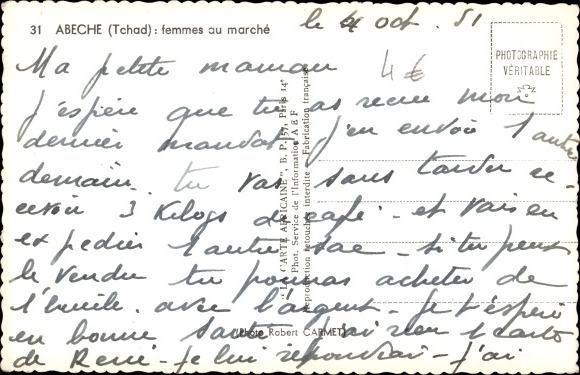 31 ABECHE (Tchad) : femmes au marché
le 4 oct. 51
4€
PHOTOGRAPHIE
VÉRITABLE
Ma petite maman
j'espère que tu as recue mon
dernier mandat j'en envoie 1 autre
demain. tu vas sans tarder re-
cevoir 3 Kilogs de café - et vais en
expedier 1 autre sac - si tu peux
le vendre tu pourras acheter de
l'huile. avec l'argent - Je t'espère
en bonne santé j'ai reçu 1 carte
de René - Je lui répondrai - j'ai
"LA CARTE AFRICAINE", B. P. 574, Paris 14e
Phot. Service de l'Information A E F
Reproduction retouchée interdite - Fabrication française
(Photo Robert CARMET)